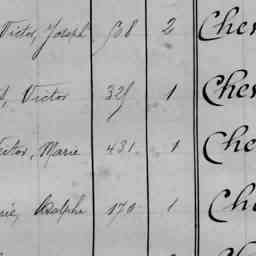 Victor, Joseph 508 2 Cher
, Victor 325 1 Cher
ctor, Marie 431 1 Che
rie, Adolphe 170 1 Ch